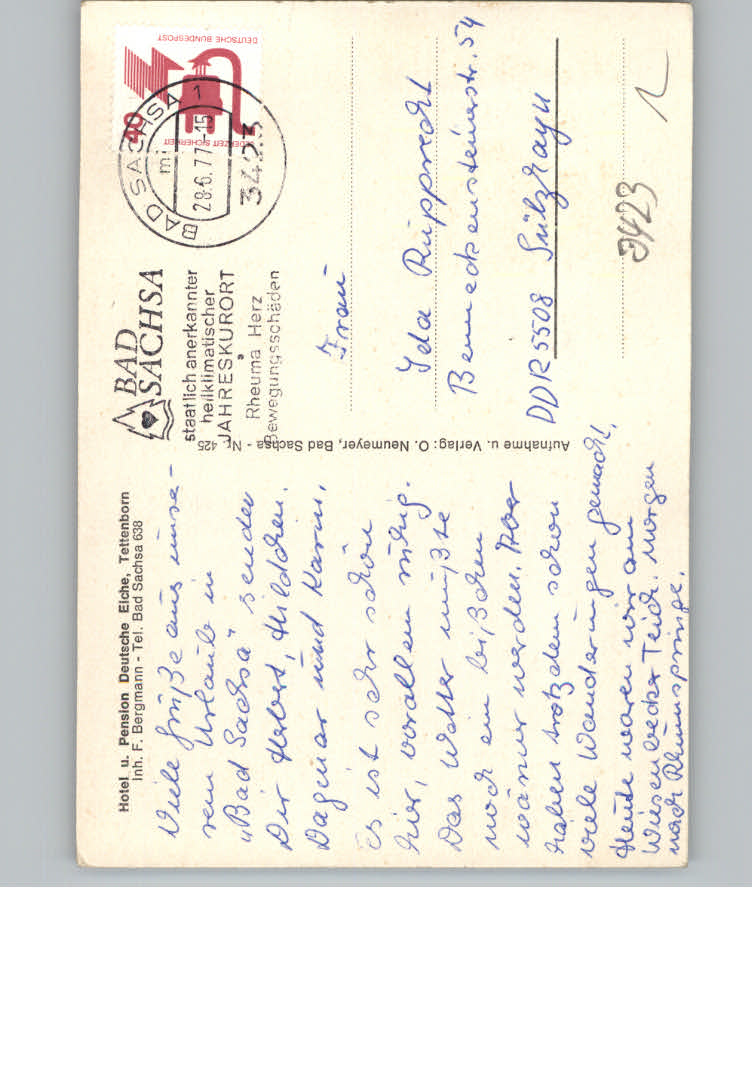 Hotel u. Pension Deutsche Eiche, Tettenborn
Inh. F. Bergmann - Tel. Bad Sachsa 638
Viele Grüße aus unse-
rem Urlaub in
„Bad Sachsa" senden
Dir Herbert, Hildchen,
Dagmar und Karin.
Es ist sehr schön
hier, vorallem ruhig.
Das Wetter müßte
noch ein bißchen
wärmer werden. Aber
haben trotzdem schon
viele Wanderungen gemacht.
Heute waren wir am
Wiesenbecker Teich. Morgen
nach Rhumspringe.
Aufnahme u. Verlag: O. Neumeyer, Bad Sachsa - Nr. 425
BAD
SACHSA
staatlich anerkannter
heilklimatischer
JAHRESKURORT
Rheuma Herz
Bewegungsschäden
BAD SACHSA 1
mi
28.6.77-15
3423
DEUTSCHE BUNDESPOST
40
JEDERZEIT SICHERHEIT
Frau
Ida Rupprecht
Benneckensteinerstr. 54
DDR 5508 Sülzhayn
3423